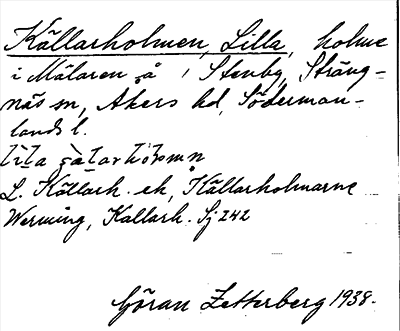 Källarholmen, Lilla, holme
i Mälaren å Stenby, Sträng-
näs sn, Åkers hd, Söderman-
lands l.
L. Källarh. ek, Källarholmarne
Werming, Kallarh. Sj 242
Göran Zetterberg 1938.